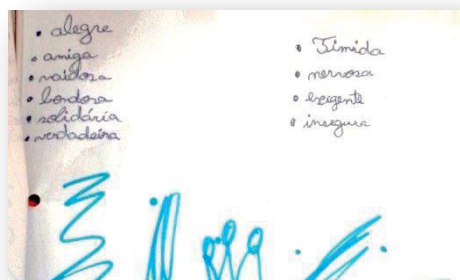 • alegre
• amiga
• vaidosa
• bondosa
• solidária
• verdadeira
• Timida
• nervosa
• exigente
• insegura